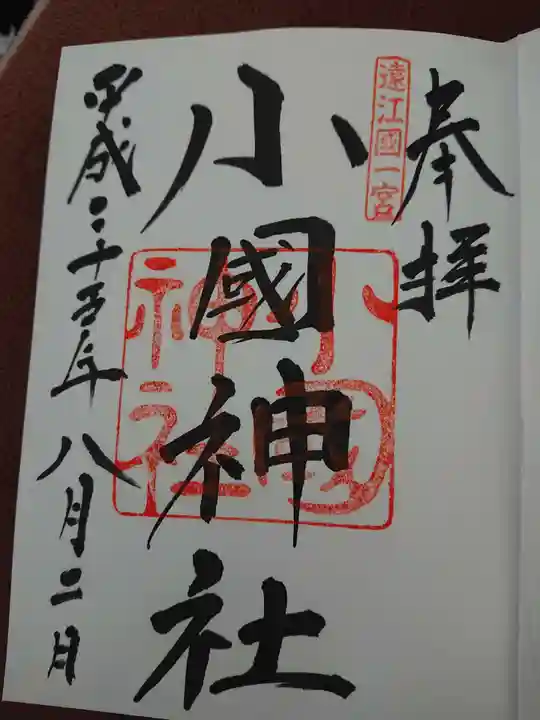 奉拝
遠江國一宮
小國神社
小國神社
平成二十五年八月二日